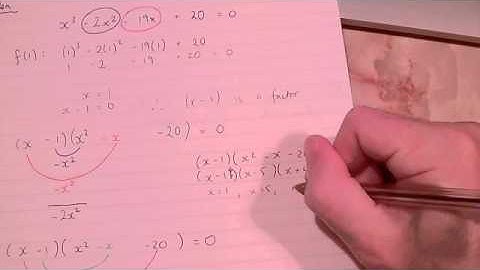 x³ - 2x² - 19x + 20 = 0
f(1): (1)³ - 2(1)² - 19(1) + 20
1 - 2 - 19 + 20 = 0
x = 1
x - 1 = 0 ∴ (x-1) is a factor
(x - 1)(x² - x - 20) = 0
-x²
-x²
-2x²
(x-1)(x² - x - 20
(x-1)(x-5)(x+
x=1, x=5,
(x - 1)(x² - x - 20) = 0